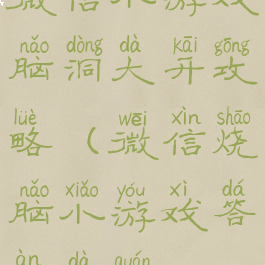 微信小游戏
nǎo dòng dà kāi gōng
脑洞大开攻
lüè wēi xìn shāo
略（微信烧
nǎo xiǎo yóu xì dá
脑小游戏答
àn dà quán